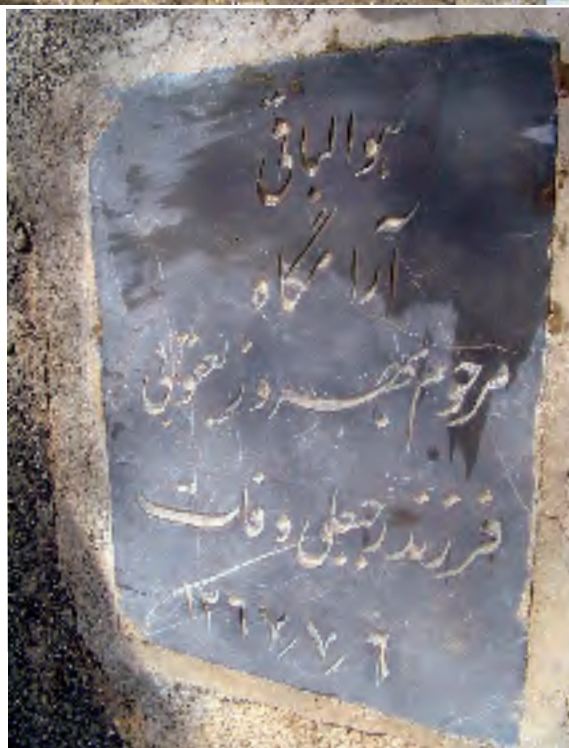 هوالباقی
آرامگاه
مرحوم بهروز یعقوبی
فرزند رجبعلی وفات
۱۳۶۷٫۷٫۶